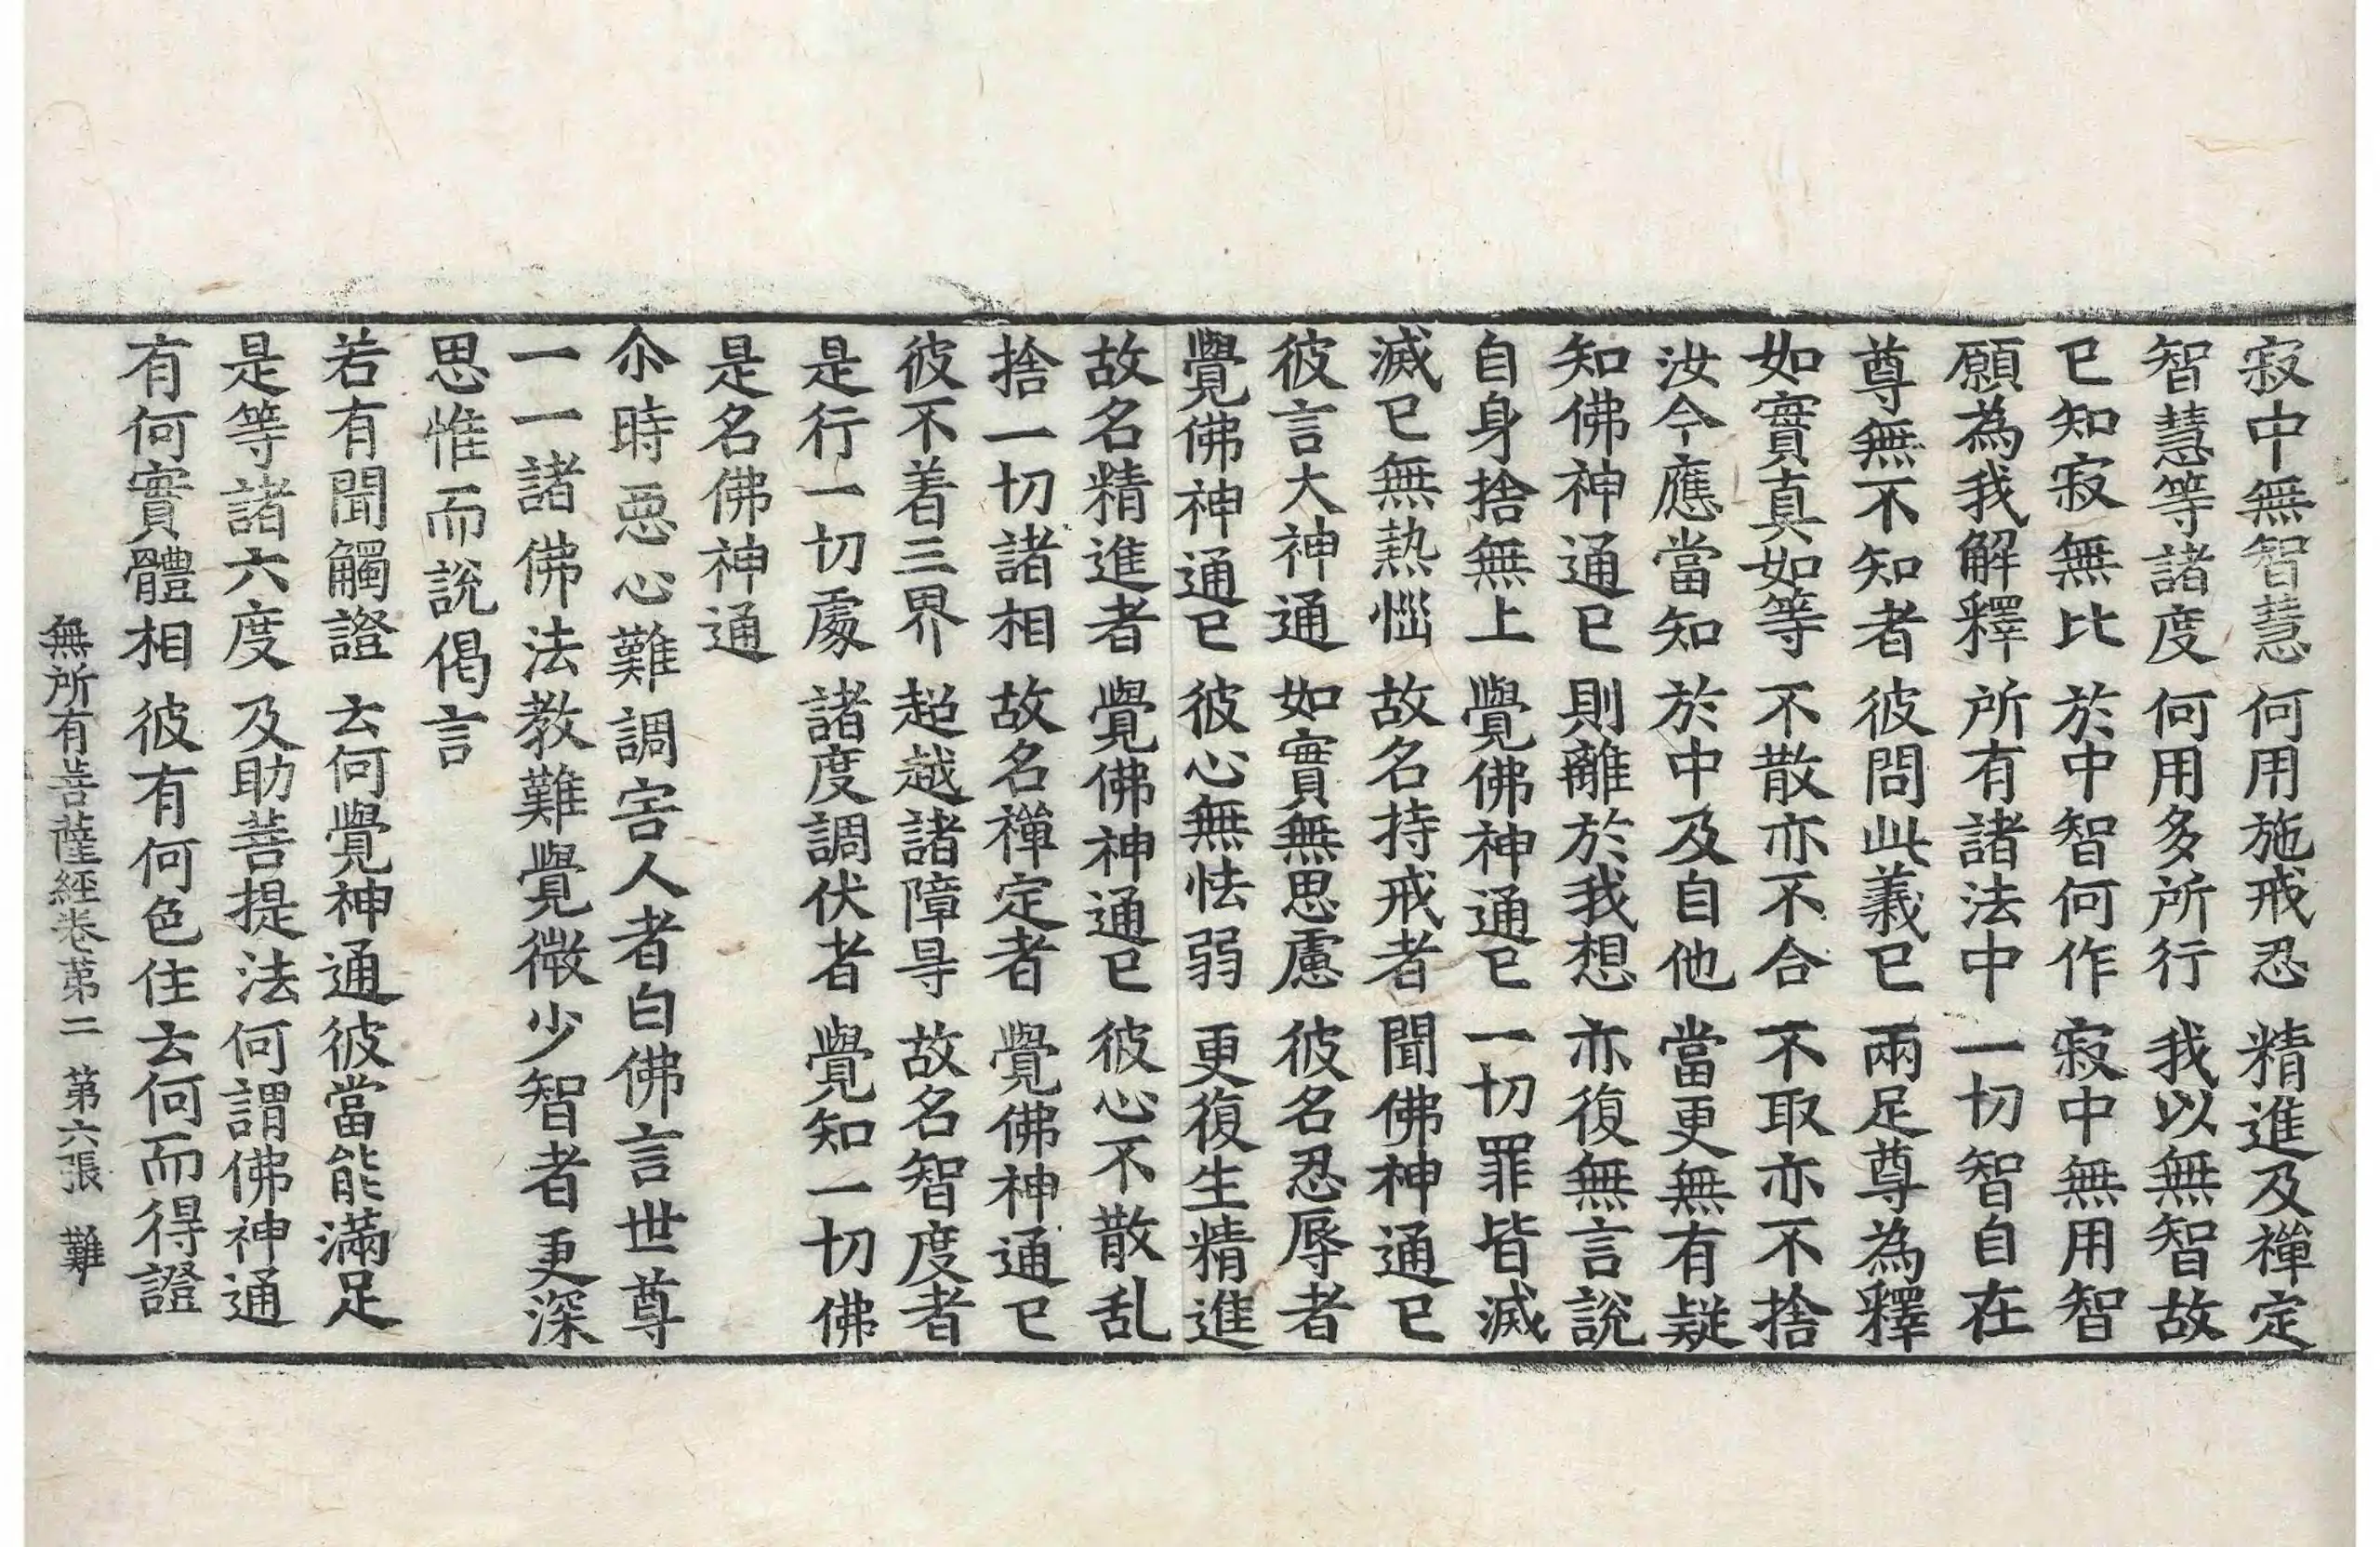 寂中無智慧　何用施戒忍　精進及禪定
智慧等諸度　何用多所行　我以無智故
已知寂無比　於中智何作　寂中無用智
願為我解釋　所有諸法中　一切智自在
尊無不知者　彼問此義已　兩足尊為釋
如實真如等　不散亦不合　不取亦不捨
汝今應當知　於中及自他　當更無有疑
知佛神通已　則離於我想　亦復無言說
自身捨無上　覺佛神通已　一切罪皆滅
滅已無熱惱　故名持戒者　聞佛神通已
彼言大神通　如實無思慮　彼名忍辱者
覺佛神通已　彼心無怯弱　更復生精進
故名精進者　覺佛神通已　彼心不散乱
捨一切諸相　故名禪定者　覺佛神通已
彼不着三界　超越諸障㝵　故名智度者
是行一切處　諸度調伏者　覺知一切佛
是名佛神通
尒時惡心難調害人者白佛言世尊
一一諸佛法教難覺微少智者更深
思惟而說偈言
若有聞觸證　云何覺神通　彼當能滿足
是等諸六度　及助菩提法　何謂佛神通
有何實體相　彼有何色住　云何而得證
無所有菩薩經卷第二　第六張　難